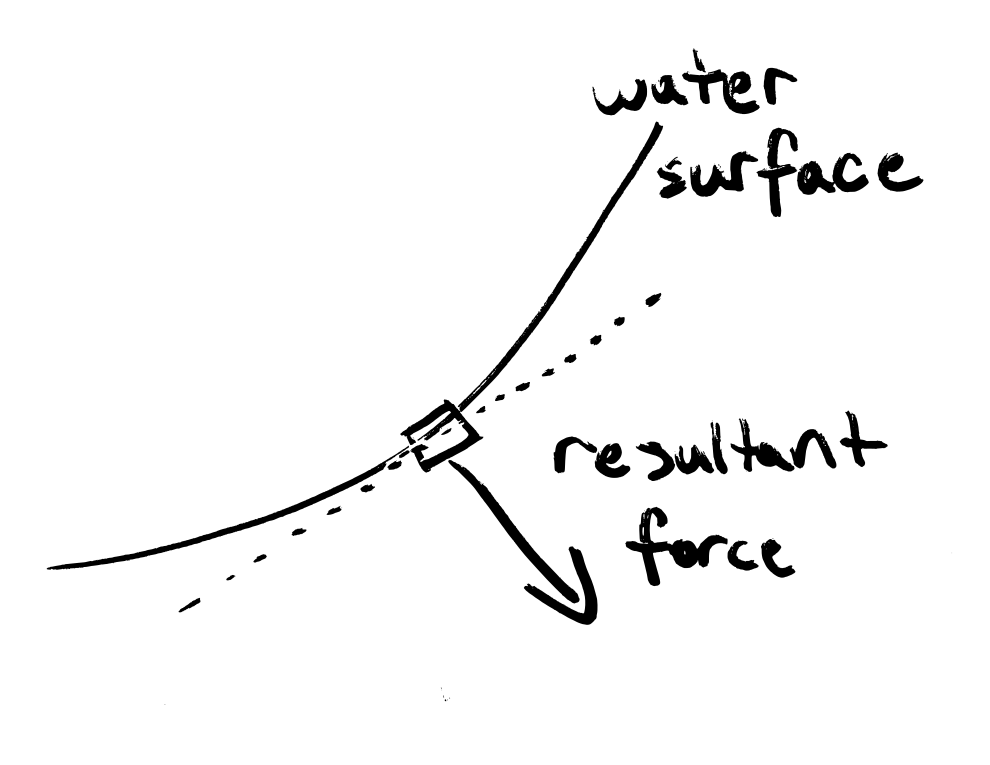 water
surface
resultant
force